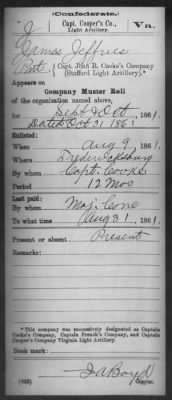 (Confederate.)
J Capt. Cooper's Co., Va.
Light Artillery.
James Jeffries
Pvt., Capt. John B. Cooke's Company
(Stafford Light Artillery).*
Appears on
Company Muster Roll
of the organization named above,
for Sept & Oct, 1861.
Dated Oct 31 1861
Enlisted:
When Aug 9, 1861.
Where Fredericksburg
By whom Capt. Cooke
Period 12 Mos
Last paid:
By whom Maj. Cone
To what time Aug 31, 1861.
Present or absent Present
Remarks:
*This company was successively designated as Captain
Cooke's Company, Captain French's Company, and Captain
Cooper's Company Virginia Light Artillery.
Book mark:
(642) Boyd
Copyist.